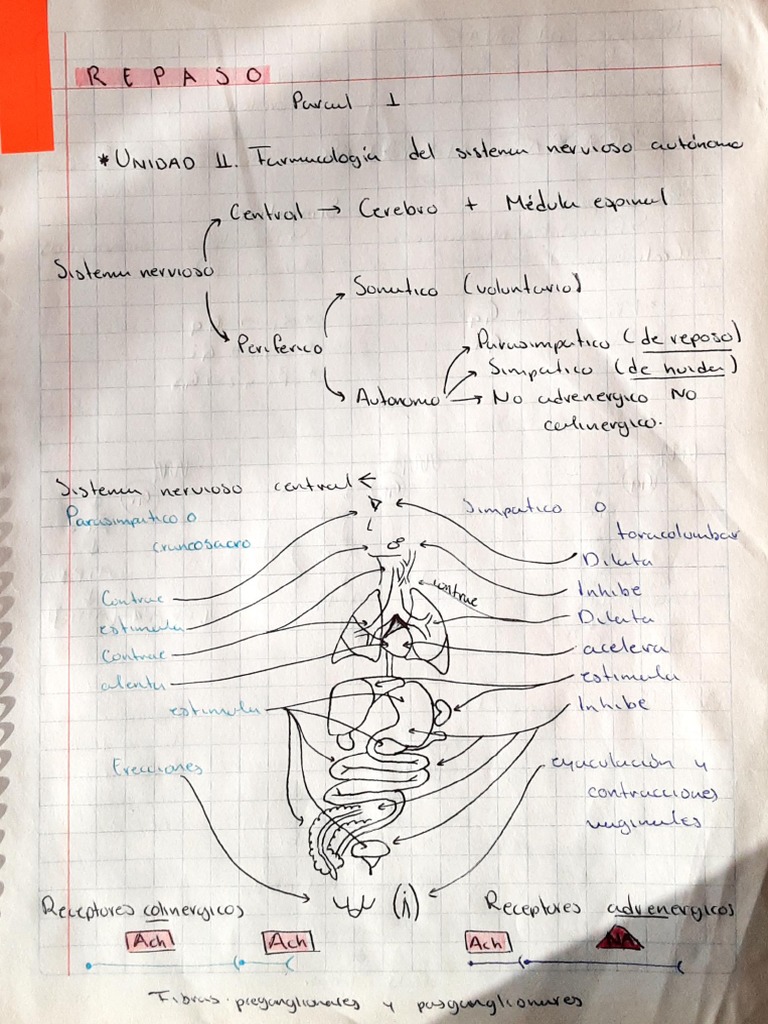 REPASO
Parcial 1
* UNIDAD II. Farmacología del sistema nervioso autónomo
Central → Cerebro + Médula espinal
Sistema nervioso
Somatico (voluntario)
Periferico
Parasimpatico (de reposo)
Simpatico (de huida)
Autonomo → No adrenergico No
colinergico.
Sistema nervioso central ←
Parasimpatico o
craneosacro
Simpatico o
toracolumbar
Dilata
contrae
Inhibe
Contrae
Dilata
estimula
Contrae
acelera
alenta
estimula
estimula
Inhibe
Erecciones
eyaculación y
contracciones
vaginales
Receptores colinergicos
Receptores adrenergicos
Ach
Ach
Ach
NA
Fibras preganglionares y posganglionares